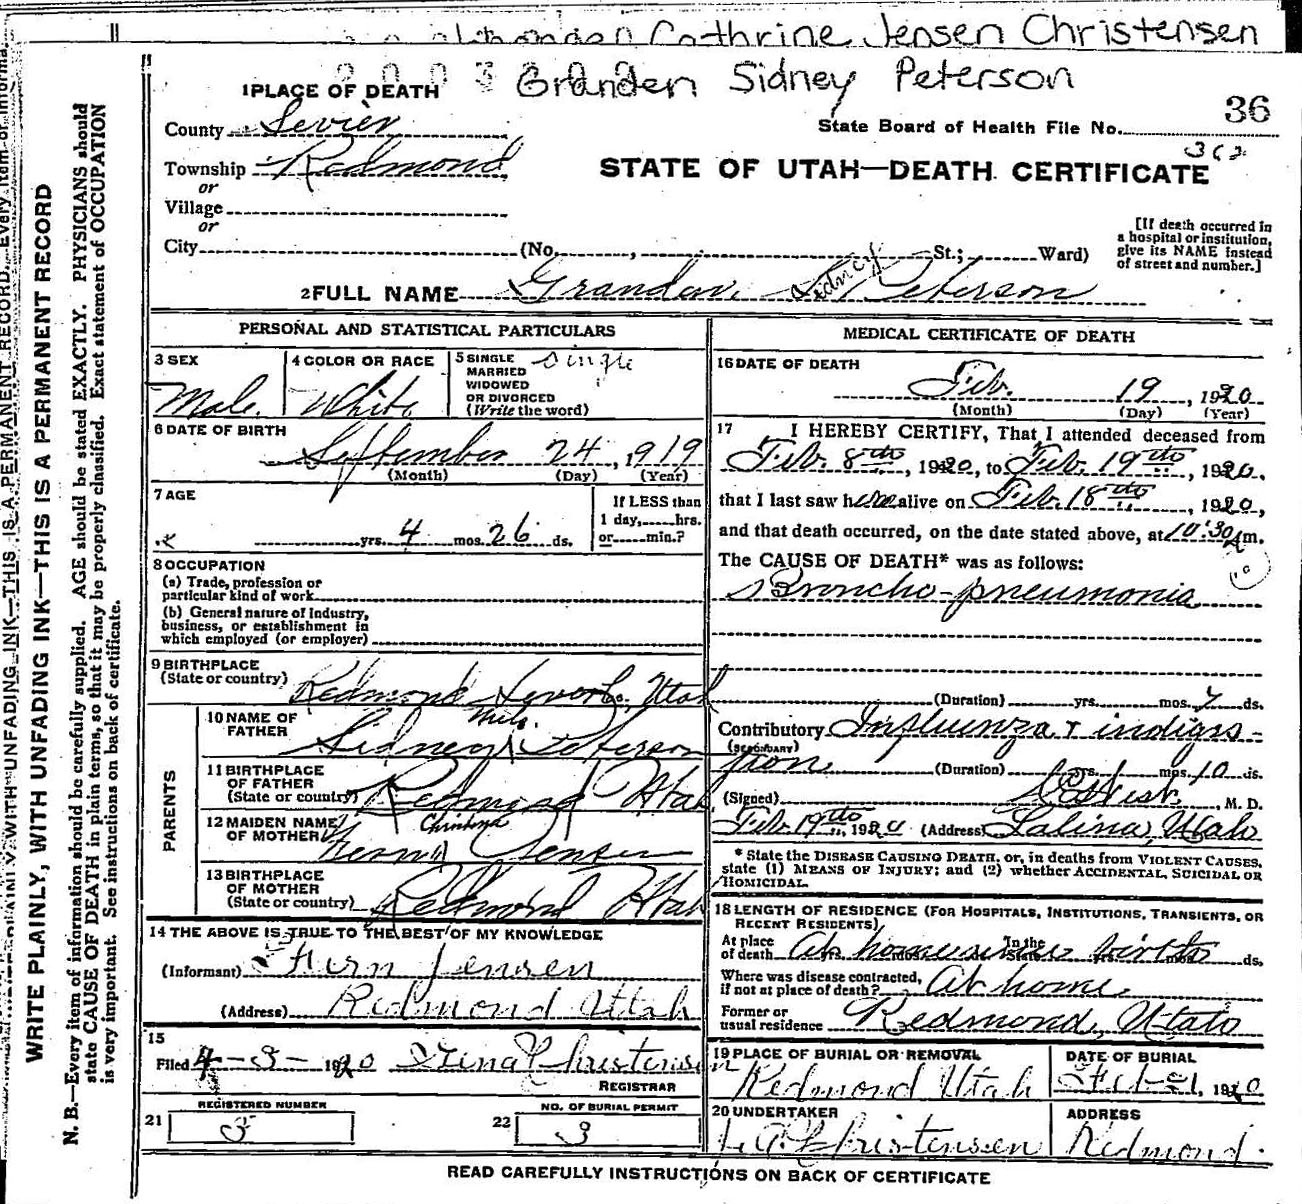 Cathrine Jensen Christensen
Granden Sidney Peterson
1 PLACE OF DEATH
County Sevier
Township Redmond
or
Village
or
City (No. , St.; Ward)
State Board of Health File No. 36
362
STATE OF UTAH—DEATH CERTIFICATE
[If death occurred in
a hospital or institution,
give its NAME instead
of street and number.]
2 FULL NAME Grandon Sidney Peterson
PERSONAL AND STATISTICAL PARTICULARS
3 SEX
Male
4 COLOR OR RACE
White
5 SINGLE
MARRIED
WIDOWED
OR DIVORCED
(Write the word)
Single
6 DATE OF BIRTH
September 24, 1919
(Month) (Day) (Year)
7 AGE
yrs. 4 mos. 26 ds.
If LESS than
1 day, hrs.
or min.?
8 OCCUPATION
(a) Trade, profession or
particular kind of work
(b) General nature of industry,
business, or establishment in
which employed (or employer)
9 BIRTHPLACE
(State or country) Redmond Sevier Co. Utah
PARENTS
10 NAME OF
FATHER Sidney Peterson
11 BIRTHPLACE
OF FATHER
(State or country) Redmond Utah
12 MAIDEN NAME
OF MOTHER Jensen
13 BIRTHPLACE
OF MOTHER
(State or country) Redmond Utah
14 THE ABOVE IS TRUE TO THE BEST OF MY KNOWLEDGE
(Informant) Fern Jensen
(Address) Redmond Utah
15
Filed 4-3-1920 Christensen
REGISTRAR
21 REGISTERED NUMBER
3
22 NO. OF BURIAL PERMIT
3
MEDICAL CERTIFICATE OF DEATH
16 DATE OF DEATH
Feb. 19, 1920
(Month) (Day) (Year)
17 I HEREBY CERTIFY, That I attended deceased from
Feb. 8th, 1920, to Feb. 19th, 1920,
that I last saw him alive on Feb. 18th, 1920,
and that death occurred, on the date stated above, at 10:30 A m.
The CAUSE OF DEATH* was as follows:
Broncho-pneumonia
(Duration) yrs. mos. 7 ds.
Contributory Influenza & indiges-
(SECONDARY)
tion (Duration) yrs. mos. 10 ds.
(Signed) M. D.
Feb 19th, 1920 (Address) Salina, Utah
* State the DISEASE CAUSING DEATH, or, in deaths from VIOLENT CAUSES,
state (1) MEANS OF INJURY; and (2) whether ACCIDENTAL, SUICIDAL OR
HOMICIDAL.
18 LENGTH OF RESIDENCE (FOR HOSPITALS, INSTITUTIONS, TRANSIENTS, OR
RECENT RESIDENTS)
At place
of death At home since birth ds.
In the
State
Where was disease contracted,
if not at place of death? At home
Former or
usual residence Redmond, Utah
19 PLACE OF BURIAL OR REMOVAL
Redmond Utah
DATE OF BURIAL
Feb-21, 1920
20 UNDERTAKER
Christensen
ADDRESS
Redmond.
READ CAREFULLY INSTRUCTIONS ON BACK OF CERTIFICATE
WRITE PLAINLY, WITH UNFADING INK—THIS IS A PERMANENT RECORD
N. B.—Every item of information should be carefully supplied. AGE should be stated EXACTLY. PHYSICIANS should
state CAUSE OF DEATH in plain terms, so that it may be properly classified. Exact statement of OCCUPATION
is very important. See instructions on back of certificate.